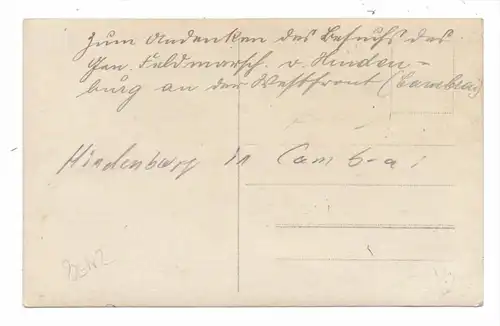 Zum Andenken des Besuchs des
Gen. Feldmarsch. v. Hinden-
burg an der Westfront (Cambrai)
Hindenburg in Cambrai